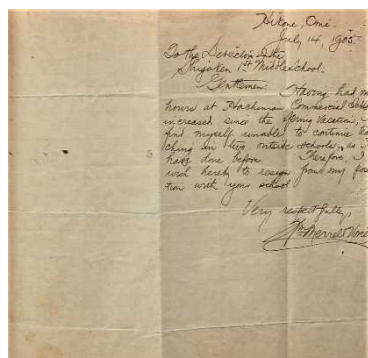 Hikone, Omi.
July 14, 1905.
To the Directors of the
Shigaken 1st Middle School.
Gentlemen: Having had m
hours at Hachiman Commercial School
increased since the Spring Vacation, I
find myself unable to continue tea-
ching in two outside schools, as I
have done before. Therefore, I
wish hereby to resign from my posi-
tion with your school.
Very respectfully,
Wm Merrell Vories